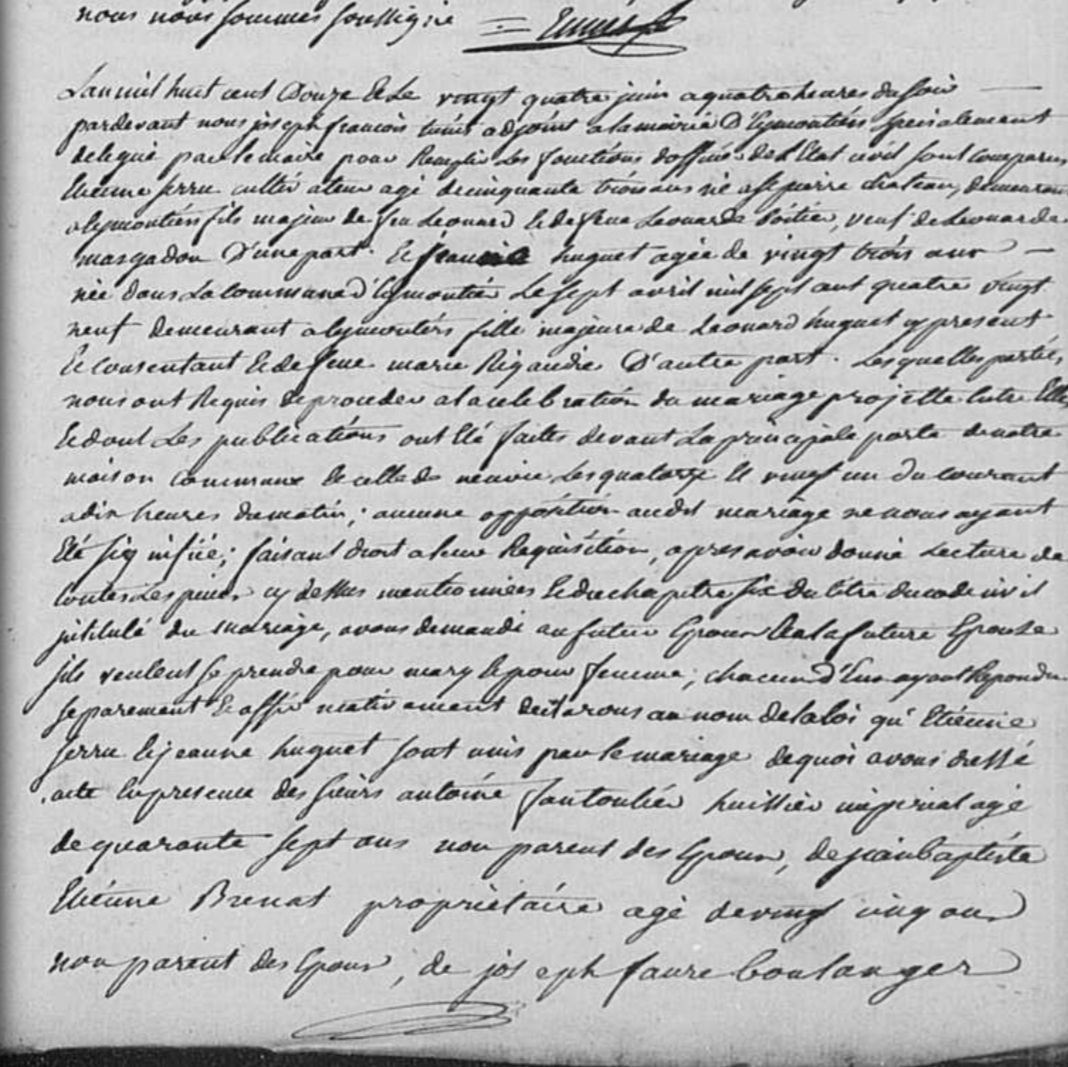 nous nous sommes soussigné
Lan mil huit cent Douze et Le vingt quatre juin a quatre heures du soir
pardevant nous joseph francois adjoint a la mairie D'Eymoutiers specialement
delegué par le maire pour Remplir Les fonctions d'officier de L'Etat civil sont comparus
Etienne serru cultivateur agé de cinquante trois ans né a st pierre chateau, demeurant
a Eymoutiers fils majeur de feu Leonard et de feue Leonarde Poitier, veuf de Leonarde
masgadou D'une part. Et huguet agée de vingt trois ans
née dans La commune d'Eymoutiers Le sept avril mil sept cent quatre vingt
neuf demeurant a Eymoutiers fille majeure de Leonard huguet cy present
Et consentant Et de feue marie Rigaudie D'autre part. Lesquelles parties
nous ont Requis de proceder a la celebration du mariage projetté Entre Elles
Et dont Les publications ont Eté faites devant La principale porte de notre
maison Commune Et celle de neuvic Les quatorze Et vingt un du courant
a dix heures du matin; aucune opposition audit mariage ne nous ayant
Eté signifiée; faisant droit a leur Requisition, apres avoir donné Lecture de
toutes Les pieces cy dessus mentionnées Et du chapitre six du titre du code civil
intitulé du mariage, avons demandé au futur Epoux Et a la future Epouse
sils veulent se prendre pour mary Et pour femme; chacun d'Eux ayant Repondu
separement Et affirmativement declarons au nom de la loi qu'Etienne
serru Et jeanne huguet sont unis par le mariage de quoi avons dressé
acte En presence des sieurs antoine fantoulier huissier imperial agé
de quarante sept ans non parent des Epoux, de jean baptiste
Etienne Brenat propriétaire agé de vingt cinq ans
non parent des Epoux, de joseph faure boulanger